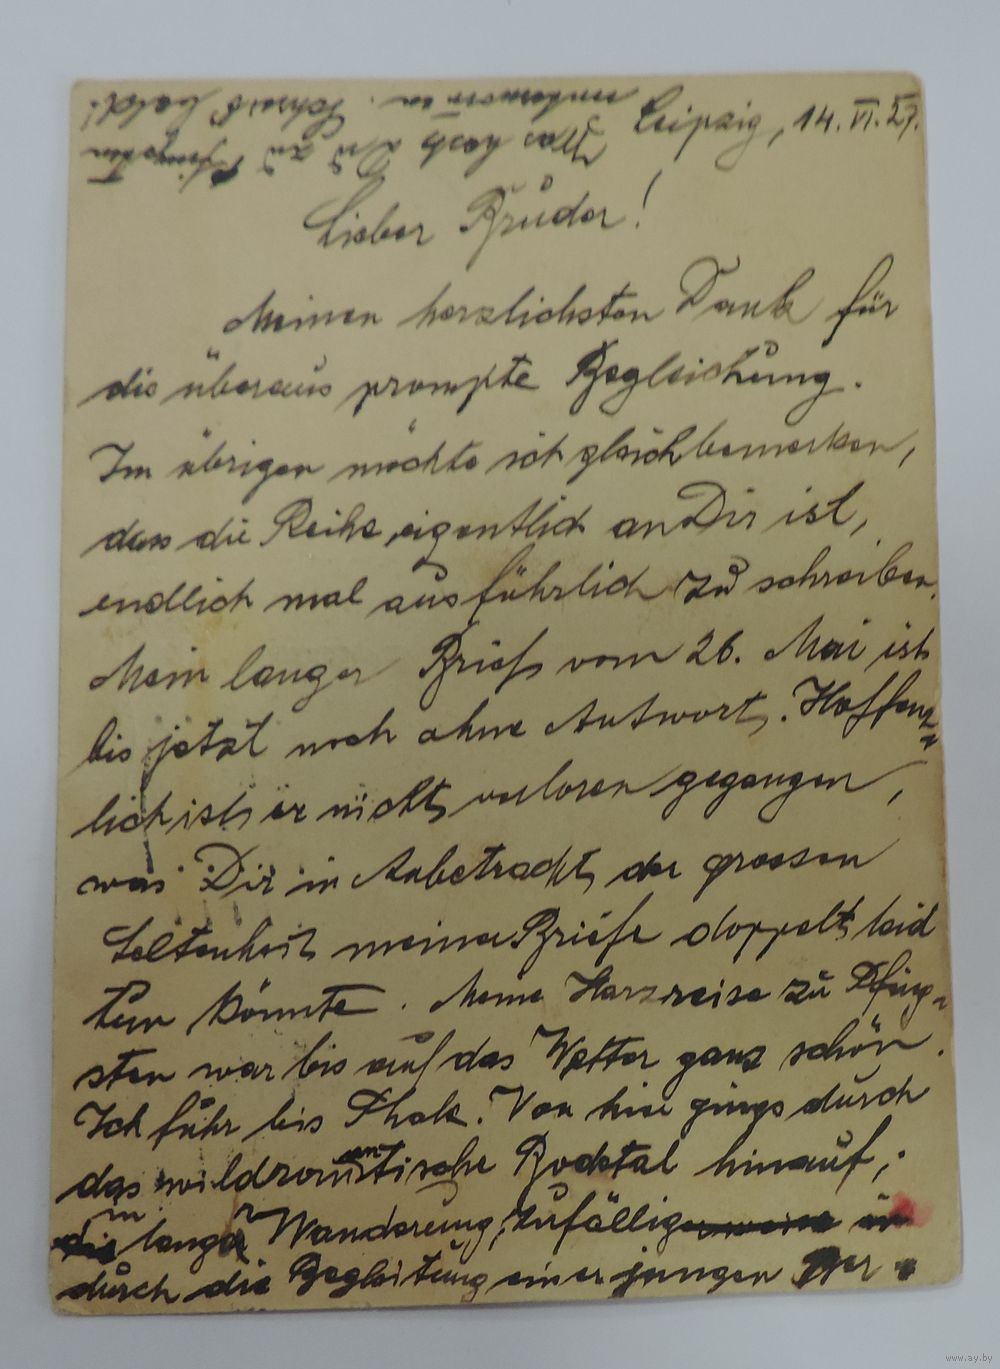 Leipzig, 14. VI. 27.
Lieber Bruder!
Meinen herzlichsten Dank für
die überaus prompte Begleichung.
Im übrigen möchte ich gleich bemerken,
dass die Reihe eigentlich an Dir ist,
endlich mal ausführlich zu schreiben.
Mein langer Brief vom 26. Mai ist
bis jetzt noch ohne Antwort. Hoffent=
lich ist er nicht verloren gegangen,
was Dir in Anbetracht der grossen
Seltenheit meiner Briefe doppelt leid
tun könnte. Meine Harzreise zu Pfing-
sten war bis auf das Wetter ganz schön.
Ich fuhr bis Thale. Von hier gings durch
das wildromantische Bodetal hinauf,
in langer Wanderung, zufällig
durch die Begleitung einer jungen
Schreib bald!
www.ay.by